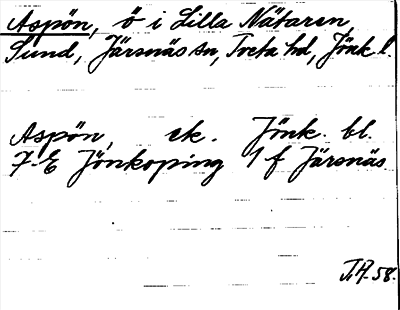 Aspön, ö i Lilla Nätaren
Sund, Järsnäs sn, Tveta hd, Jönk. l.
Aspön, ek. Jönk. bl.
7-E Jönköping 1 f Järsnäs.
58.